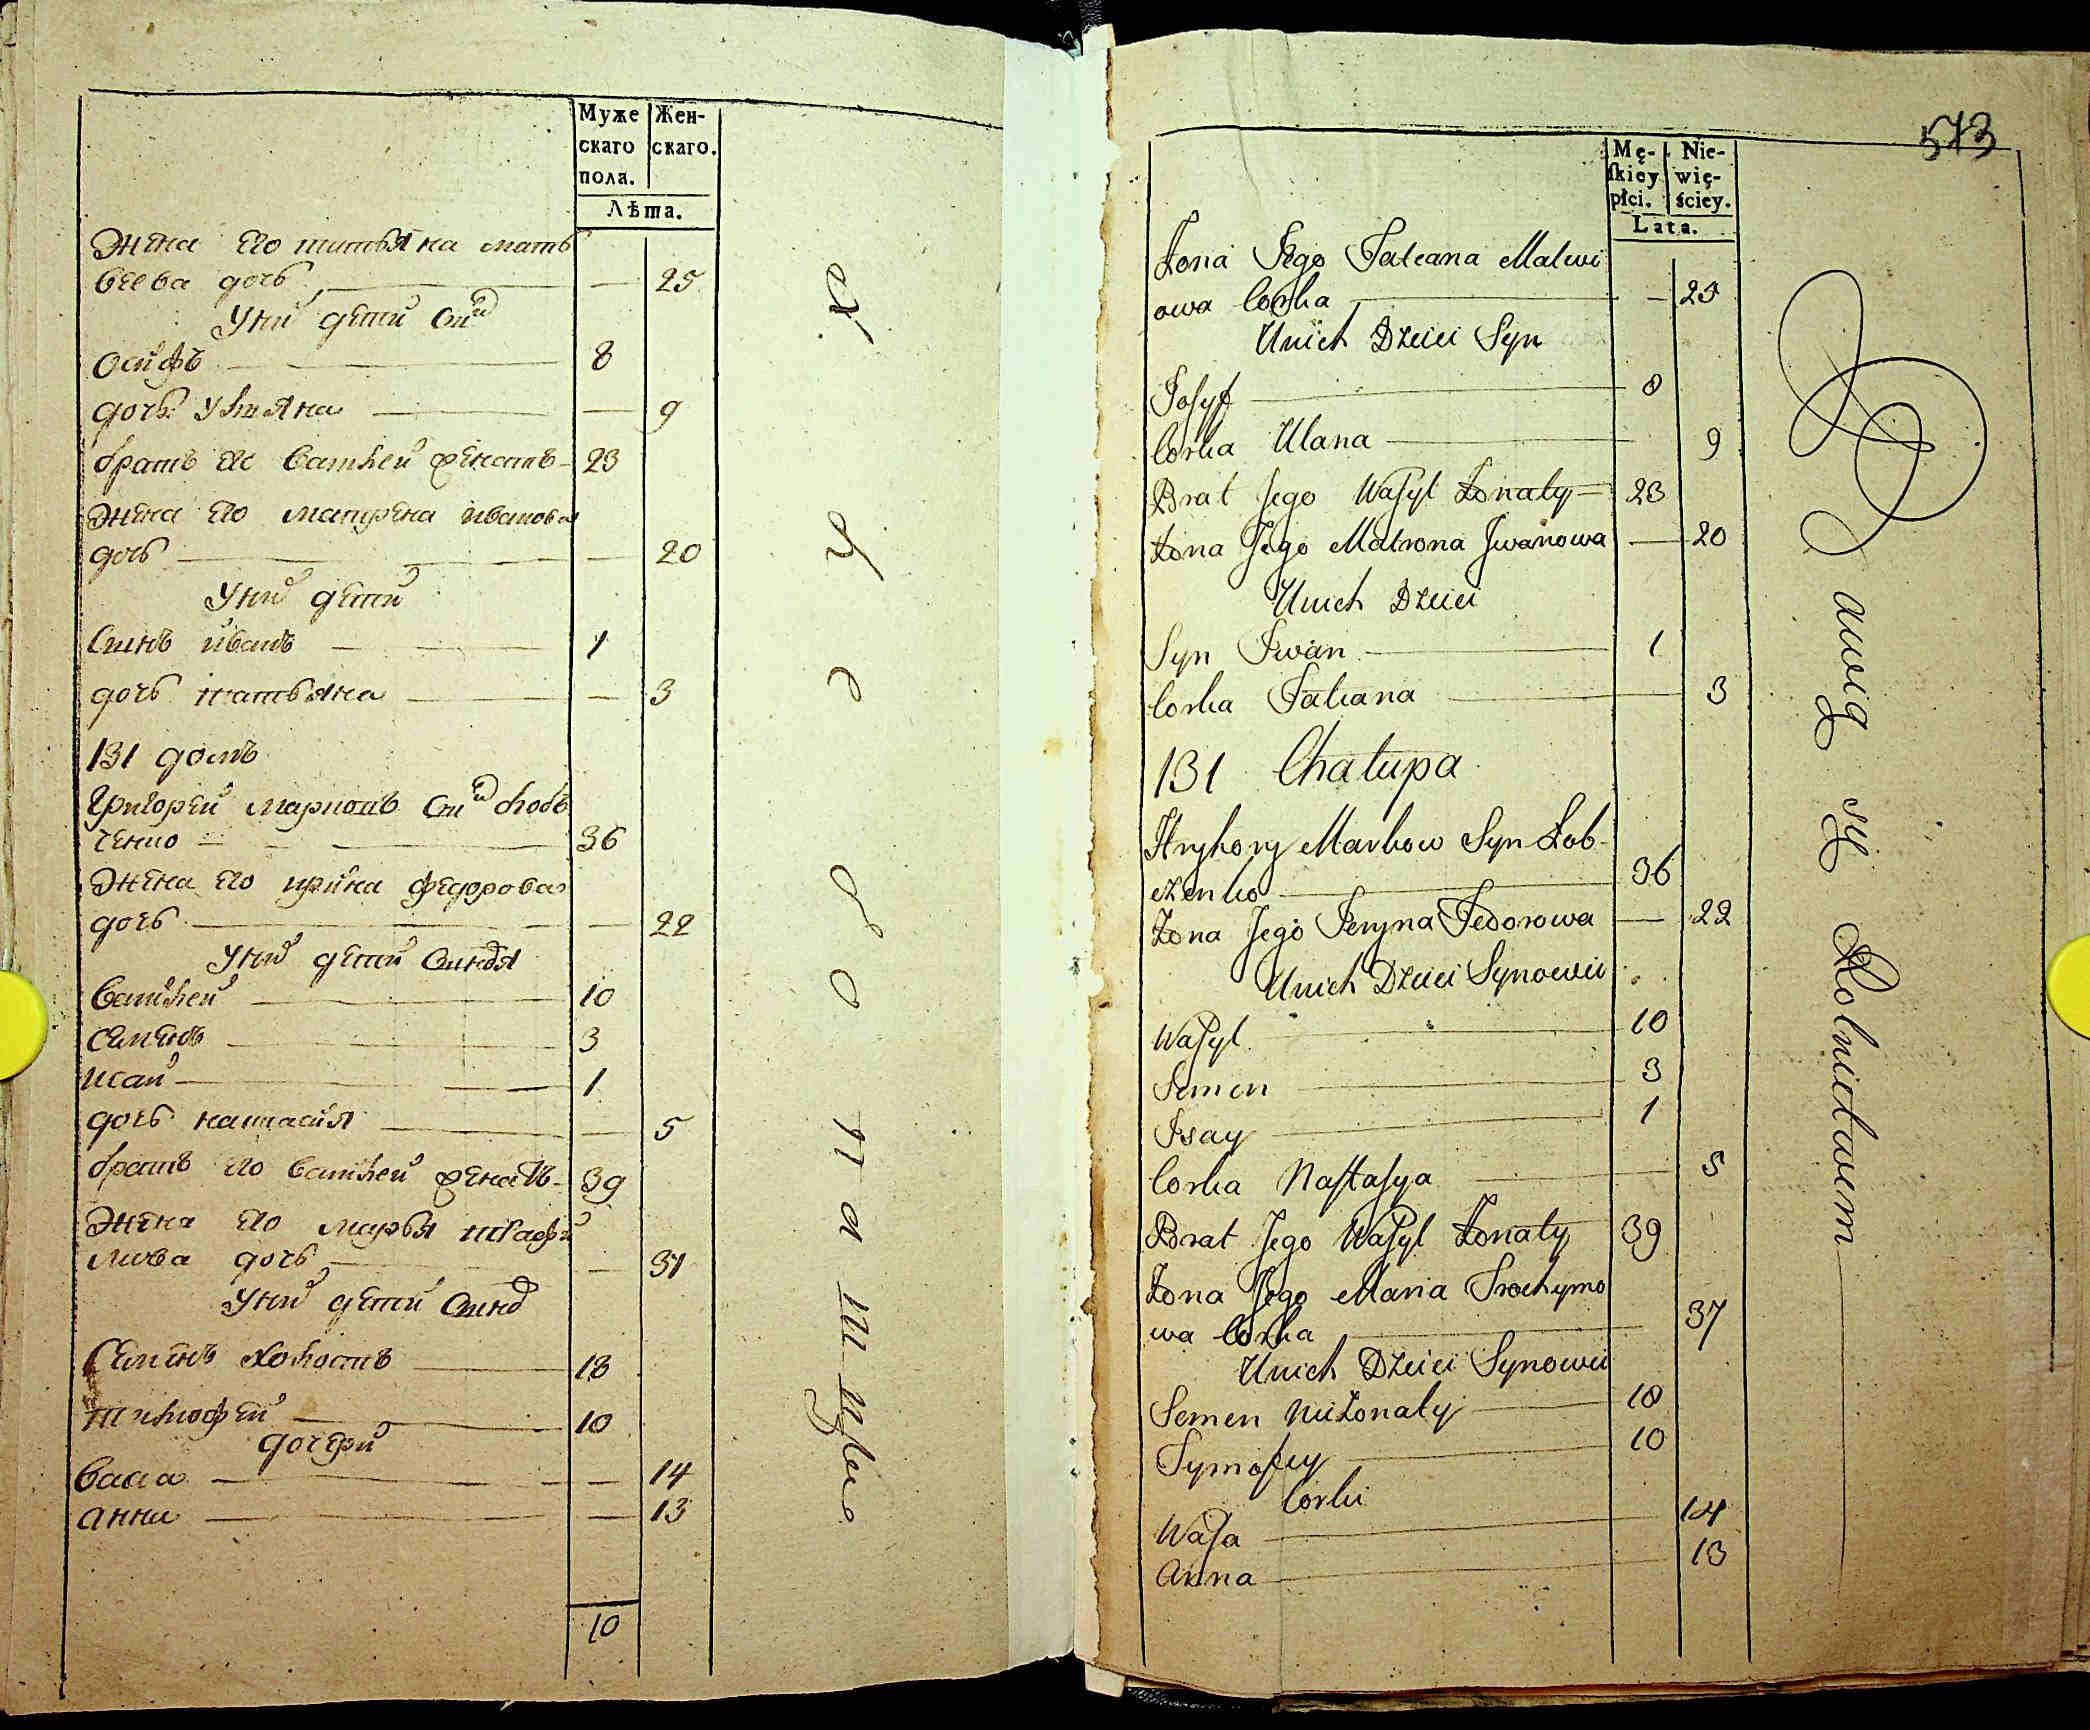 Муже
скаго
пола.
Жен-
скаго.
Лѣта.
Жена его татьяна мать
веева дочь 25
У них дети сын
Осифъ 8
дочь Ульяна 9
братъ ево Василей женатъ 23
Жена его матрена иванова
дочь 20
У них дети
Сынъ иванъ 1
дочь татьяна 3
131 домъ
Григорей марковъ сын
ченко 36
Жена его ирина федорова
дочь 22
У них дети Сыновя
Василей 10
Семенъ 3
исай 1
дочь настасия 5
братъ его Василей женатъ 39
Жена его марья
мова дочь 37
У них дети
Семенъ холостъ 18
тимофей 10
дочери
Васа 14
анна 13
10
573
Mę-
ſkiey
płci.
Nie-
wię-
ściey.
Lata.
Żona Jego Tateana Matwi
owa Corka 25
Unich Dzieci Syn
Josyf 8
Corka Ulana 9
Brat Jego Waſyl Żonaty 23
Żona Jego Matrona Jwanowa 20
Unich Dzieci
Syn Iwan 1
Corka Tatiana 3
131 Chałupa
Hryhory Markow Syn Łob-
czenko 36
Żona Jego Jeryna Fedorowa 22
Unich Dzieci Synowie
Waſyl 10
Semen 3
Isay 1
Corka Naſtaſya 5
Brat Jego Waſyl Żonaty 39
Żona Jego Maria Trochymo
wa Corka 37
Unich Dzieci Synowie
Semen nieżonaty 18
Tymofiey 10
Corki
Waſa 14
Anna 13
Bawią się Rolnictwem